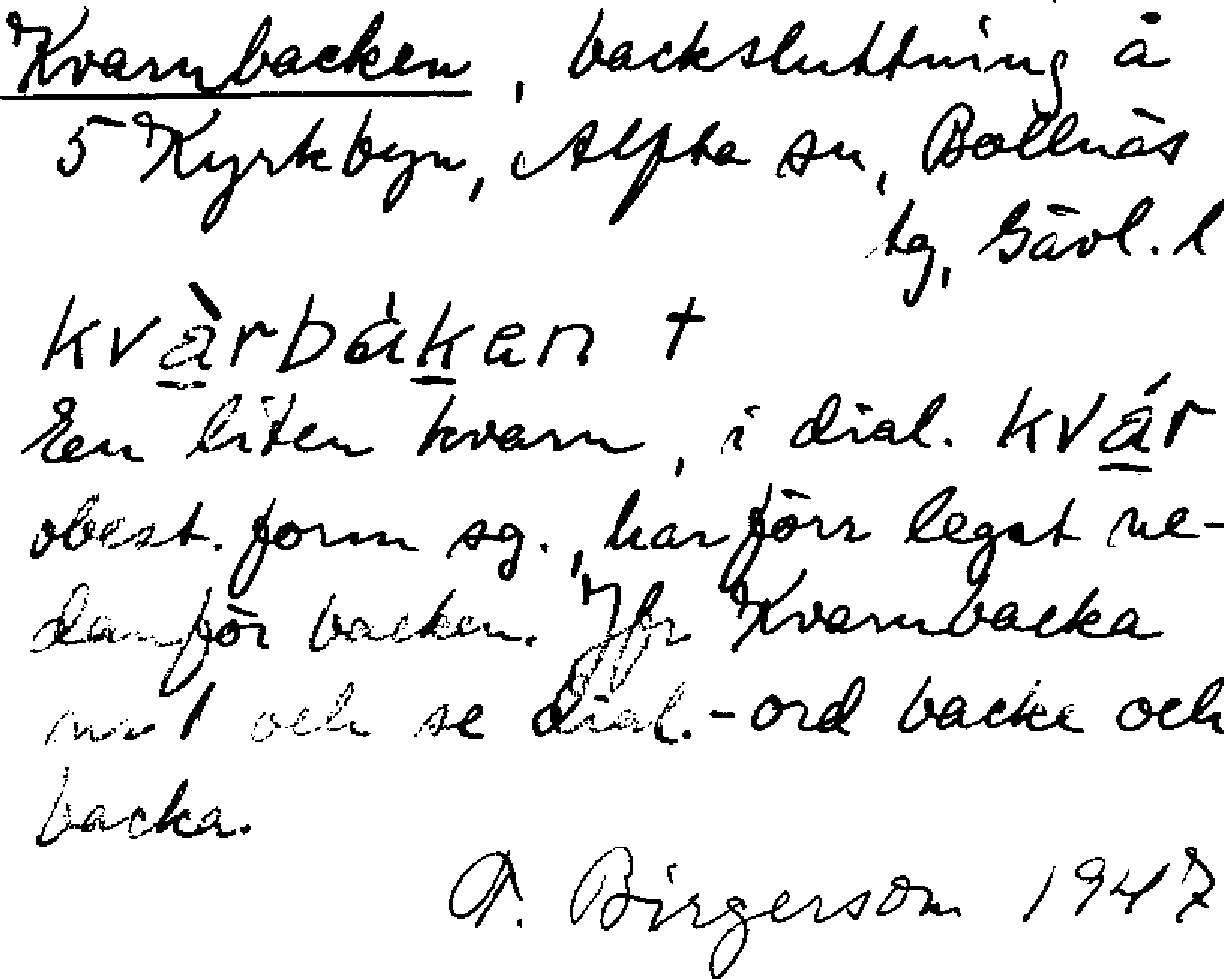 Kvarnbacken, backsluttning å
5 Kyrkbyn, Alfta sn, Bollnäs
tg, Gävl. l
kvàrbákan +
En liten kvarn, i dial. kvár
obest. form sg., har förr legat ne-
danför backen. Jfr Kvarnbacka
nr 1 och se dial.-ord backe och
backa.
F. Birgerson 1947